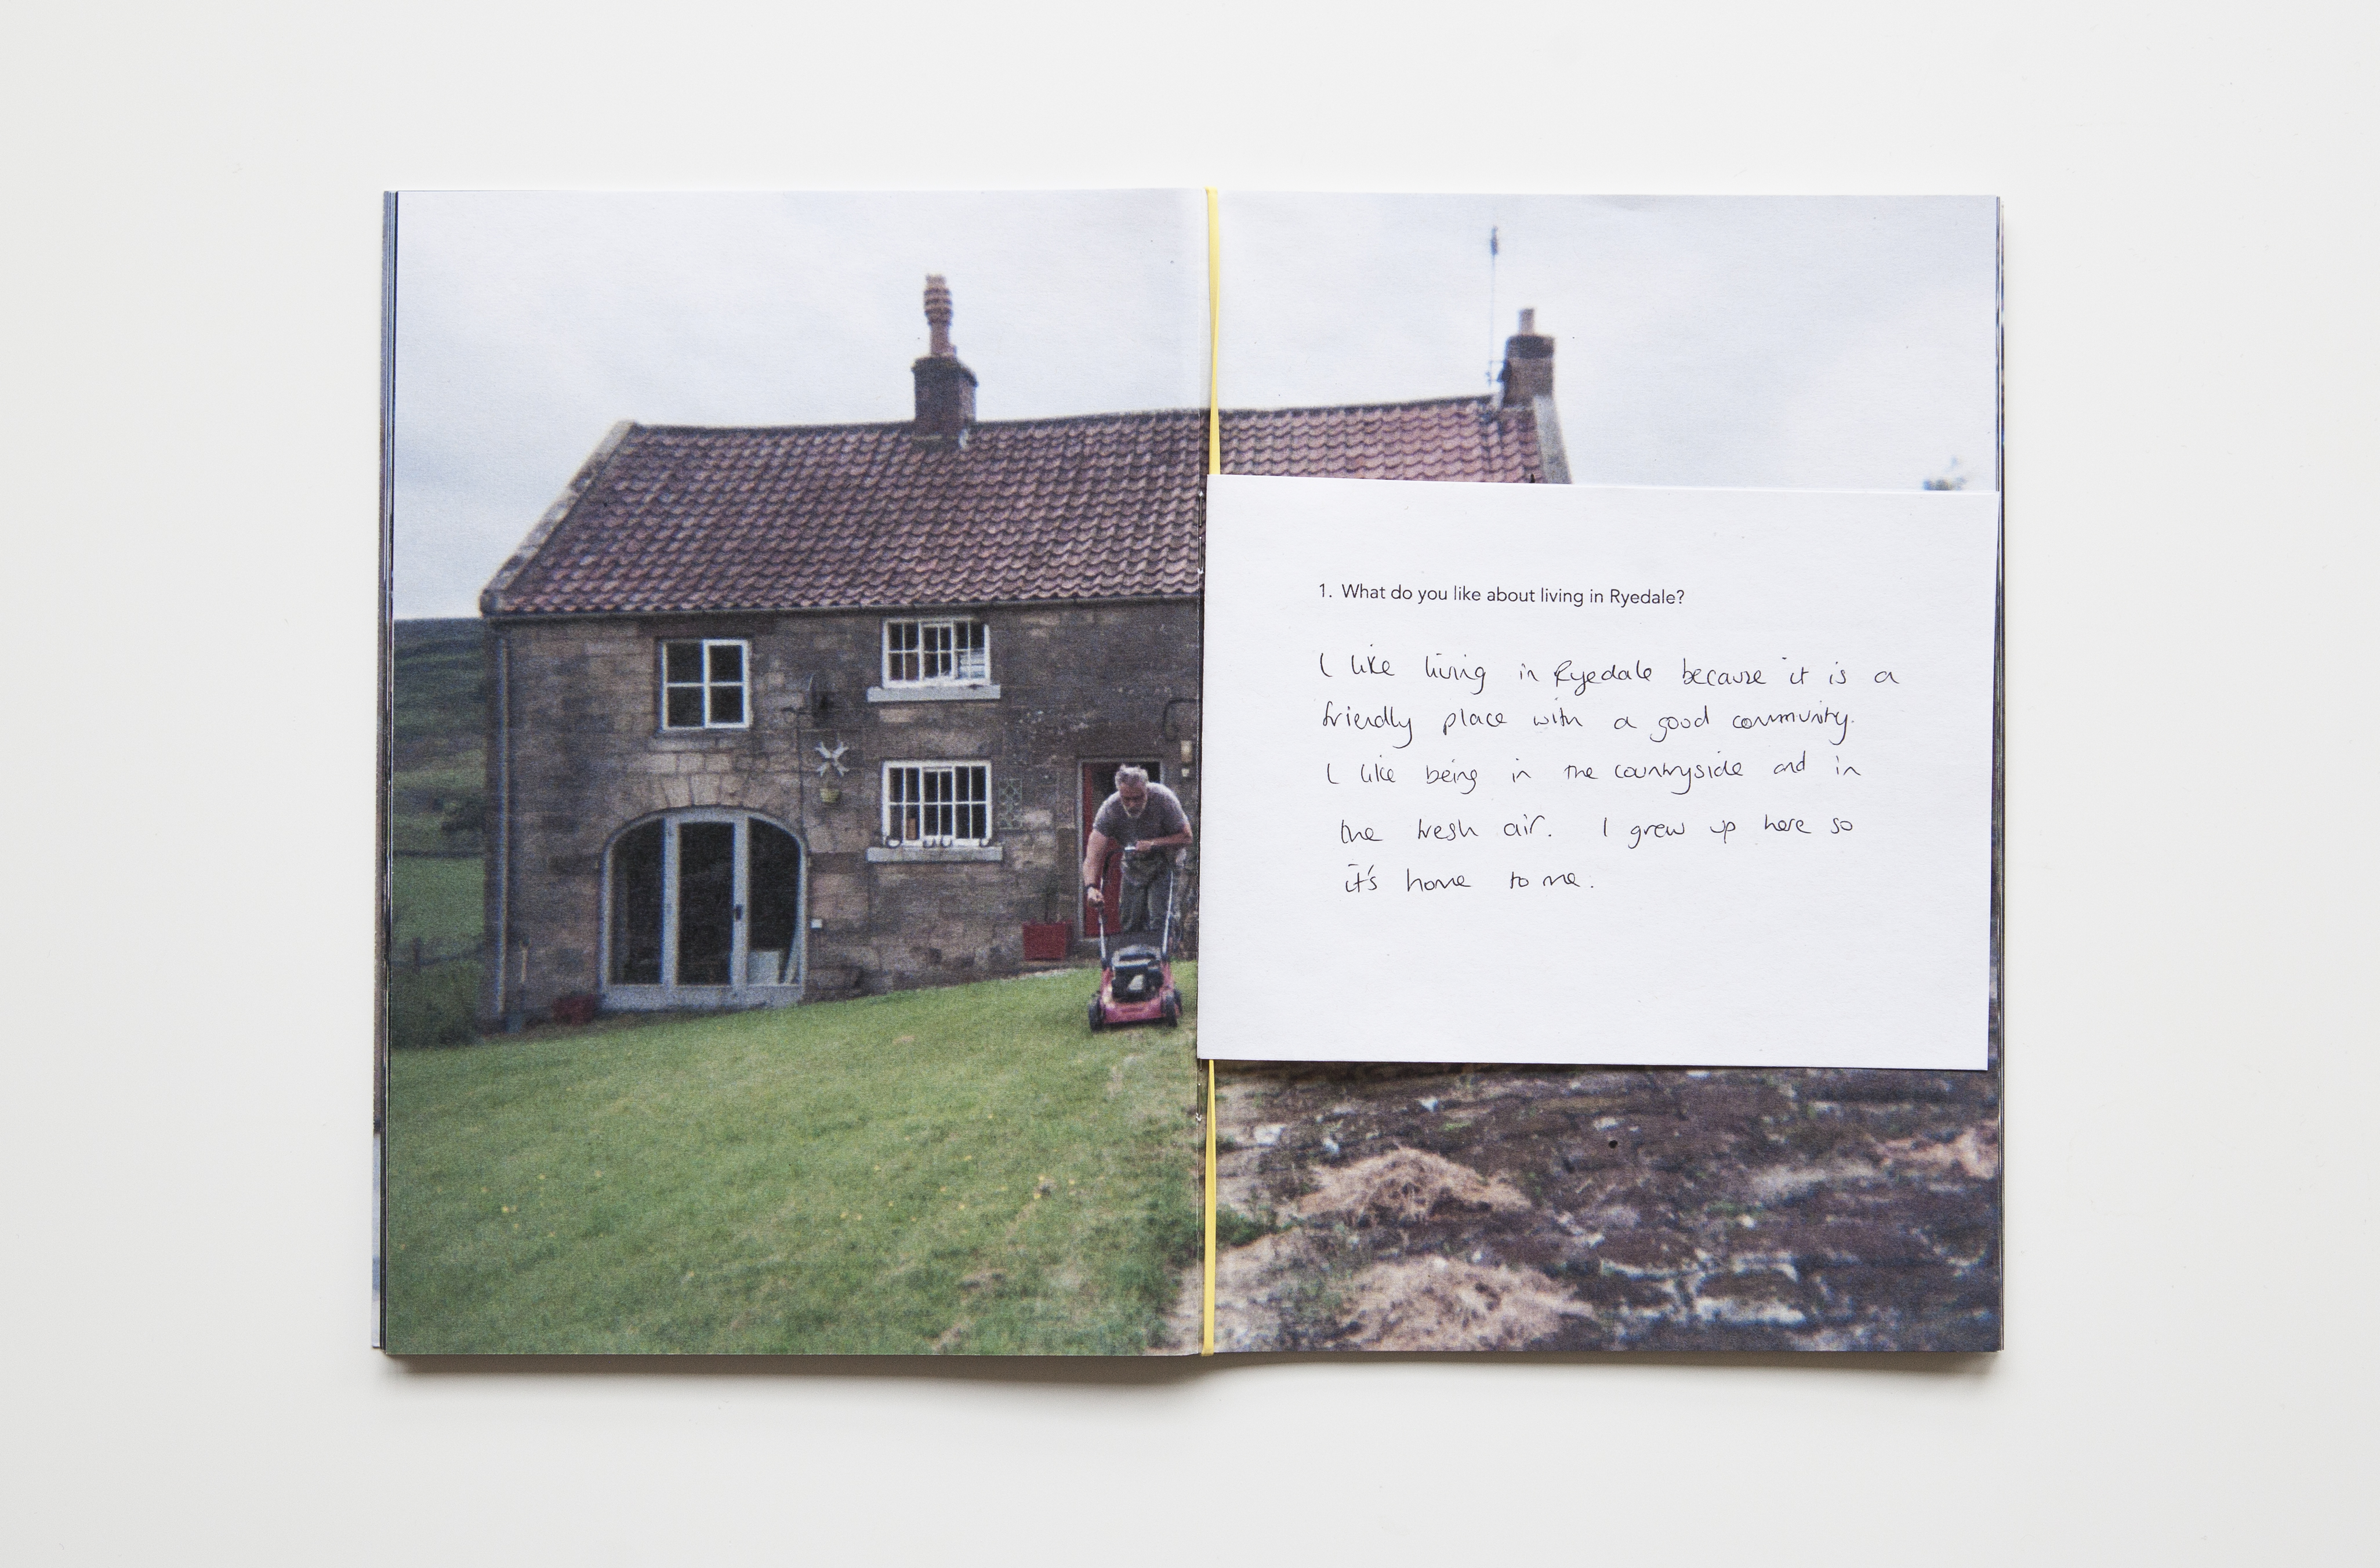 1. What do you like about living in Ryedale?
I like living in Ryedale because it is a
friendly place with a good community.
I like being in the countryside and in
the fresh air. I grew up here so
it's home to me.